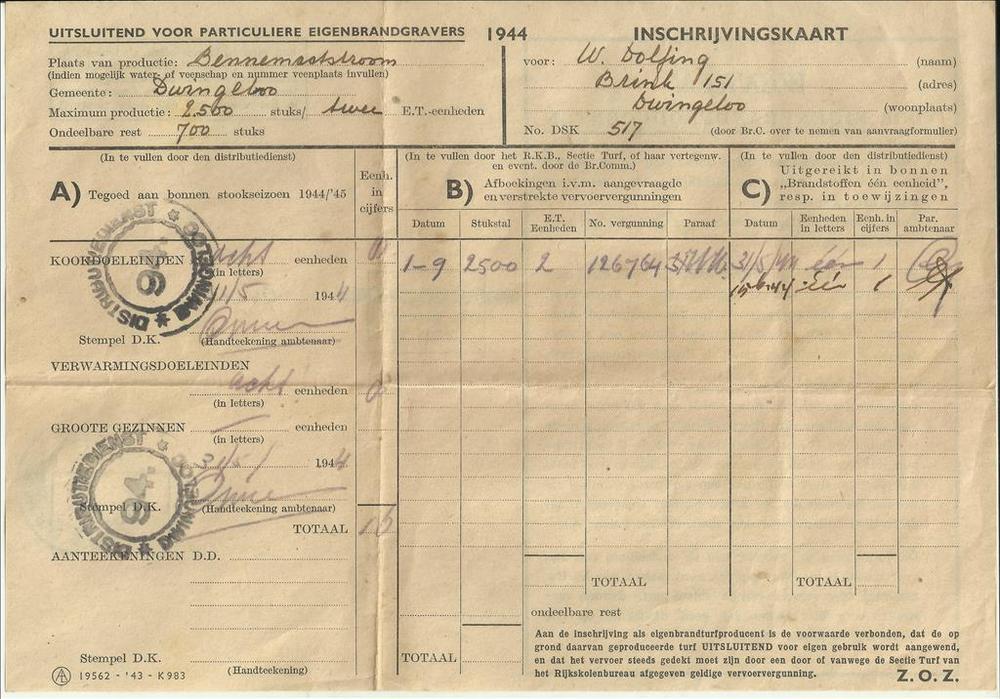 UITSLUITEND VOOR PARTICULIERE EIGENBRANDGRAVERS 1944 INSCHRIJVINGSKAART
Plaats van productie: Bennemaststroom
(indien mogelijk water- of veenschap en nummer veenplaats invullen)
Gemeente: Dwingeloo
Maximum productie: 2.500 stuks/ twee E.T.-eenheden
Ondeelbare rest 700 stuks
voor: W. Dolfing (naam)
Brink 151 (adres)
Dwingeloo (woonplaats)
No. DSK 517 (door Br.C. over te nemen van aanvraagformulier)
(In te vullen door den distributiedienst)
A) Tegoed aan bonnen stookseizoen 1944/'45
Eenh. in cijfers
KOOKDOELEINDEN acht eenheden
(in letters)
1/5 1944
Stempel D.K. (Handteekening ambtenaar)
VERWARMINGSDOELEINDEN
acht eenheden
(in letters)
GROOTE GEZINNEN eenheden
(in letters)
31/5 1944
Stempel D.K. (Handteekening ambtenaar)
TOTAAL 16
AANTEEKENINGEN D.D.
Stempel D.K.
(Handteekening)
19562 - '43 - K 983
DISTRIBUTIEDIENST 94.
DISTRIBUTIEDIENST 94.
(In te vullen door het R.K.B., Sectie Turf, of haar vertegenw.
en event. door de Br.Comm.)
B) Afboekingen i.v.m. aangevraagde
en verstrekte vervoervergunningen
Datum Stukstal E.T. Eenheden No. vergunning Paraaf
1-9 2500 2 126764
TOTAAL
ondeelbare rest
TOTAAL
(In te vullen door den distributiedienst)
C) Uitgereikt in bonnen
„Brandstoffen één eenheid",
resp. in toewijzingen
Datum Eenheden in letters Eenh. in cijfers Par. ambtenaar
31/5/44 één 1
15-6-44 één 1
TOTAAL
Aan de inschrijving als eigenbrandturfproducent is de voorwaarde verbonden, dat de op
grond daarvan geproduceerde turf UITSLUITEND voor eigen gebruik wordt aangewend,
en dat het vervoer steeds gedekt moet zijn door een door of vanwege de Sectie Turf van
het Rijkskolenbureau afgegeven geldige vervoervergunning. Z. O. Z.